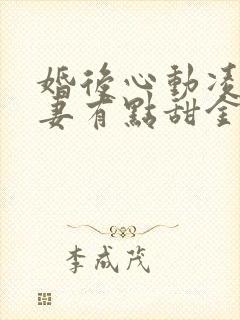 婚後心動凌
妻有點甜全
李成茂